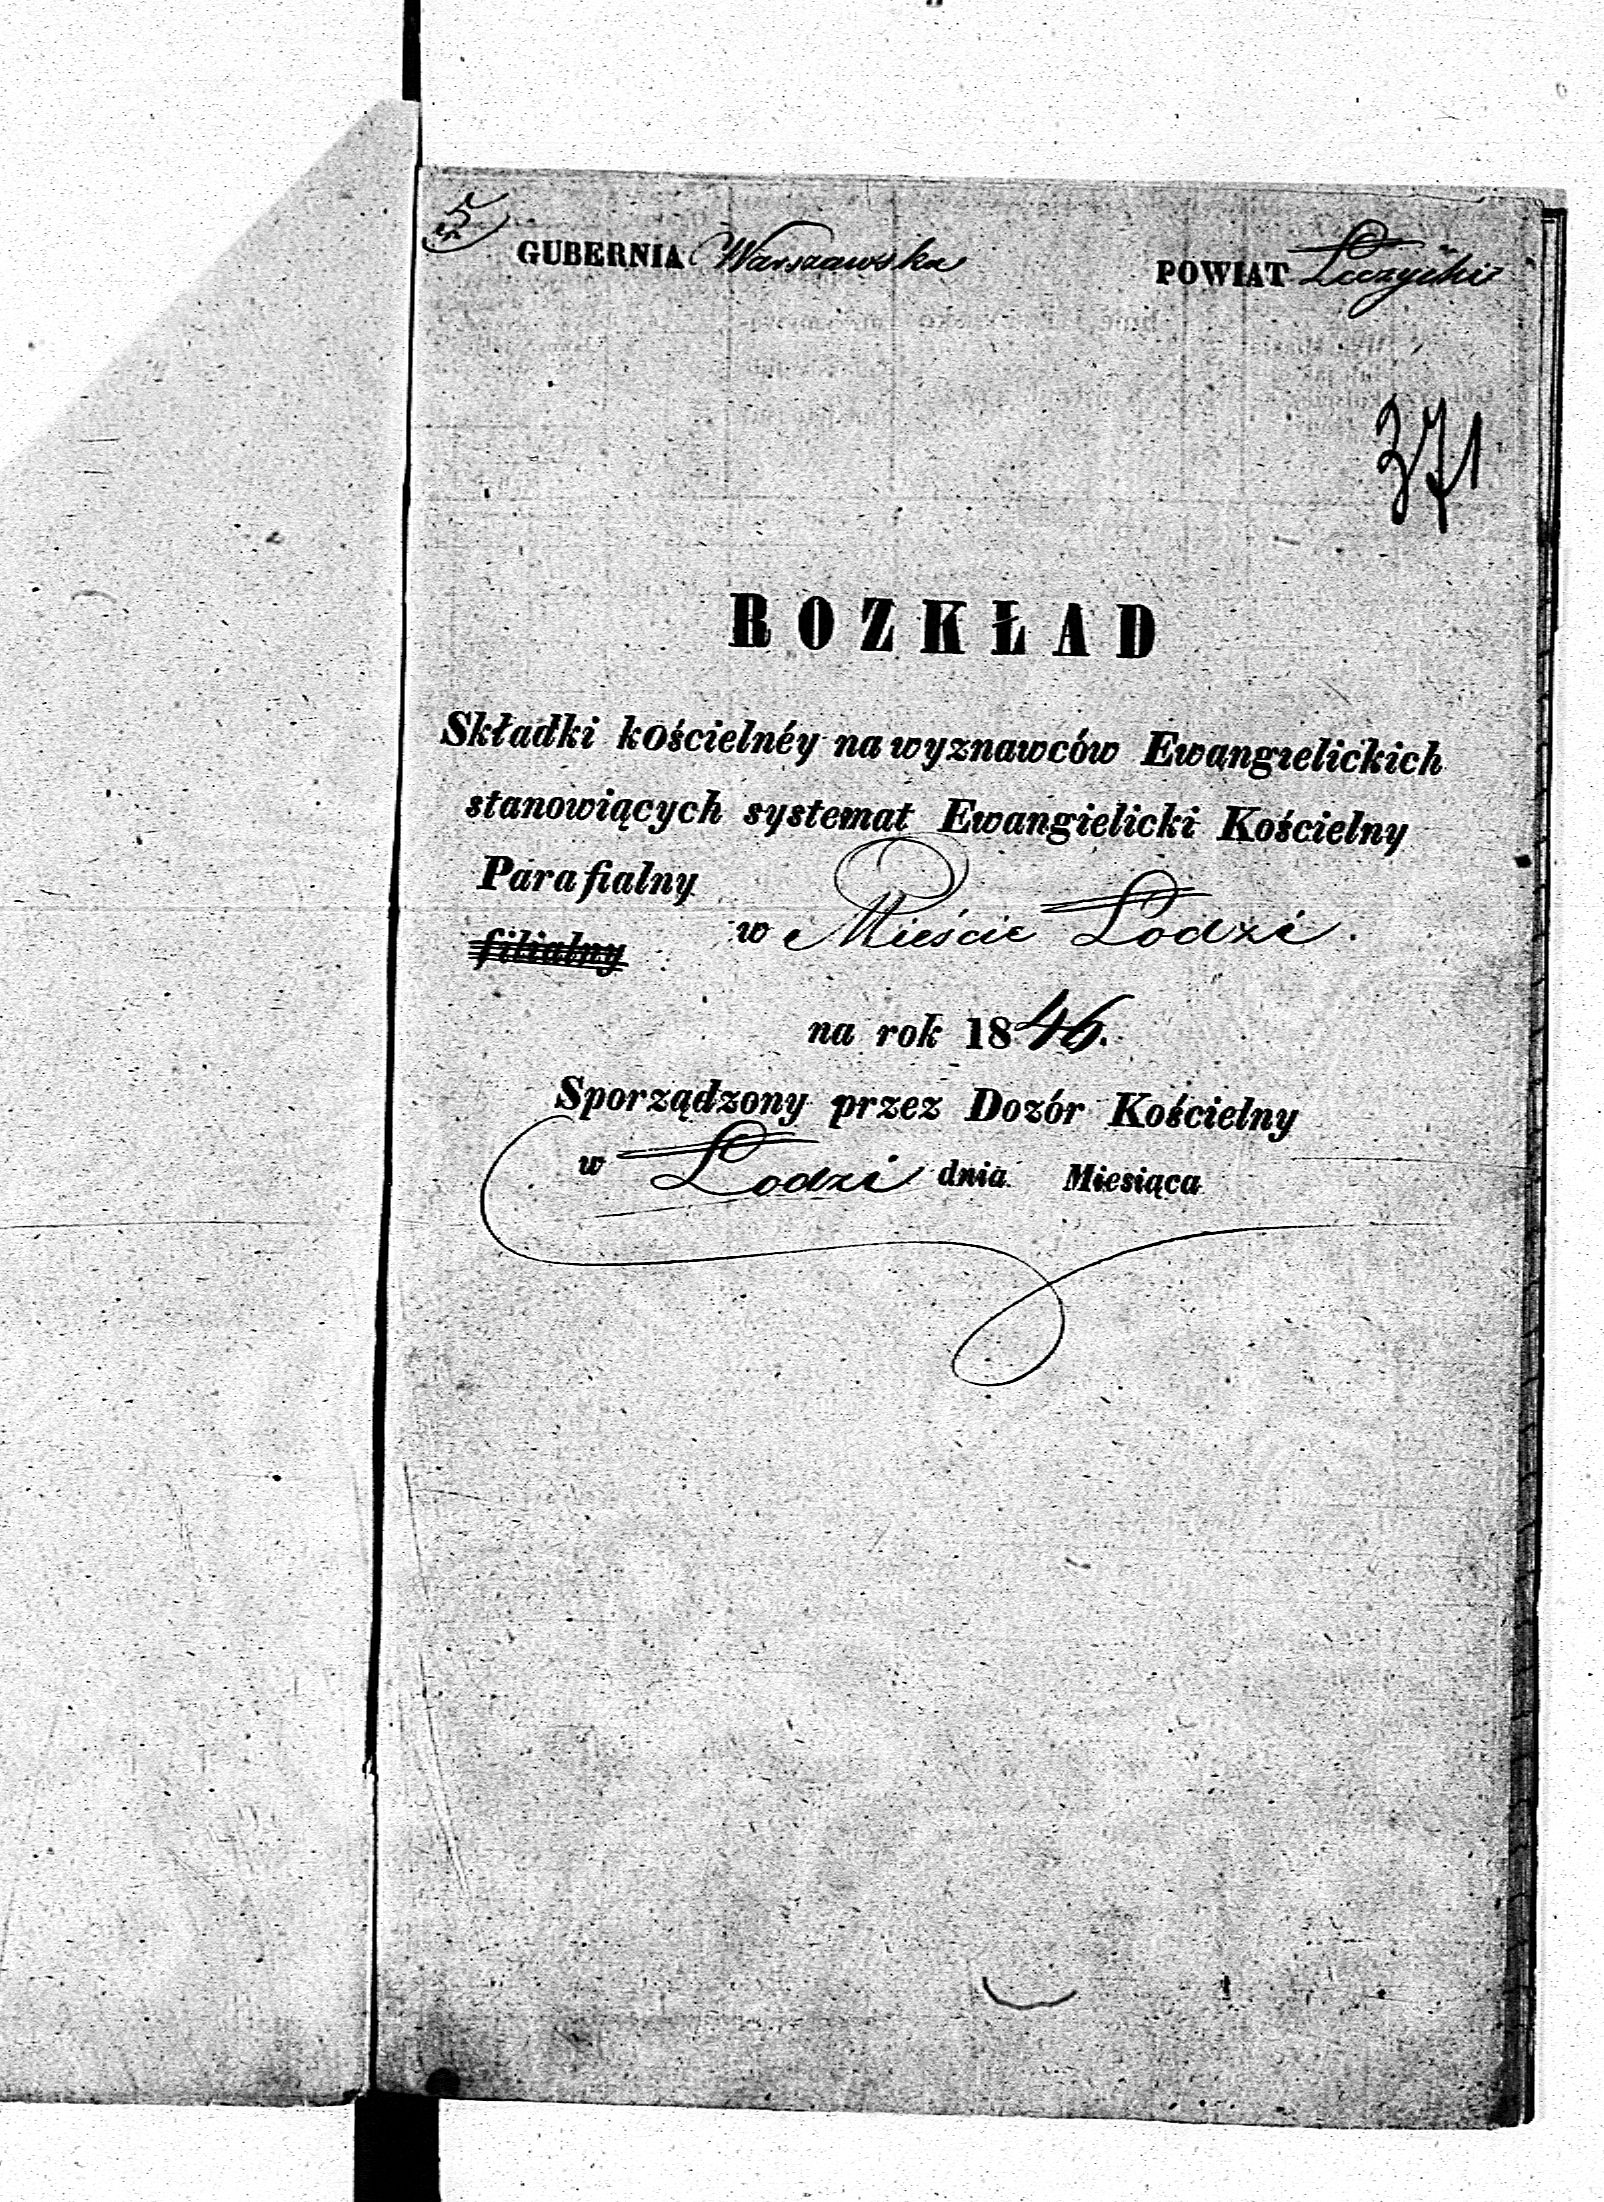 5
GUBERNIA Warszawska POWIAT Łęczycki
371
ROZKŁAD
Składki kościelnéy na wyznawców Ewangielickich
stanowiących systemat Ewangielicki Kościelny
Parafialny
filialny w Mieście Łodzi.
na rok 1846.
Sporządzony przez Dozór Kościelny
w Łodzi dnia Miesiąca